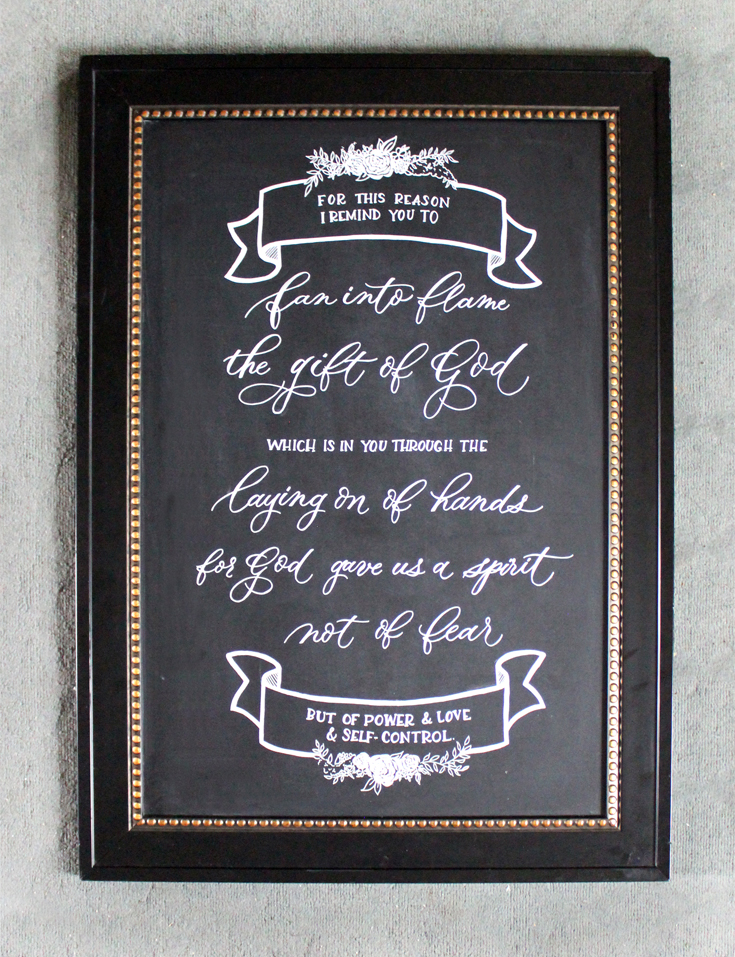 FOR THIS REASON
I REMIND YOU TO
fan into flame
the gift of God
WHICH IS IN YOU THROUGH THE
laying on of hands
for God gave us a spirit
not of fear
BUT OF POWER & LOVE
& SELF-CONTROL.